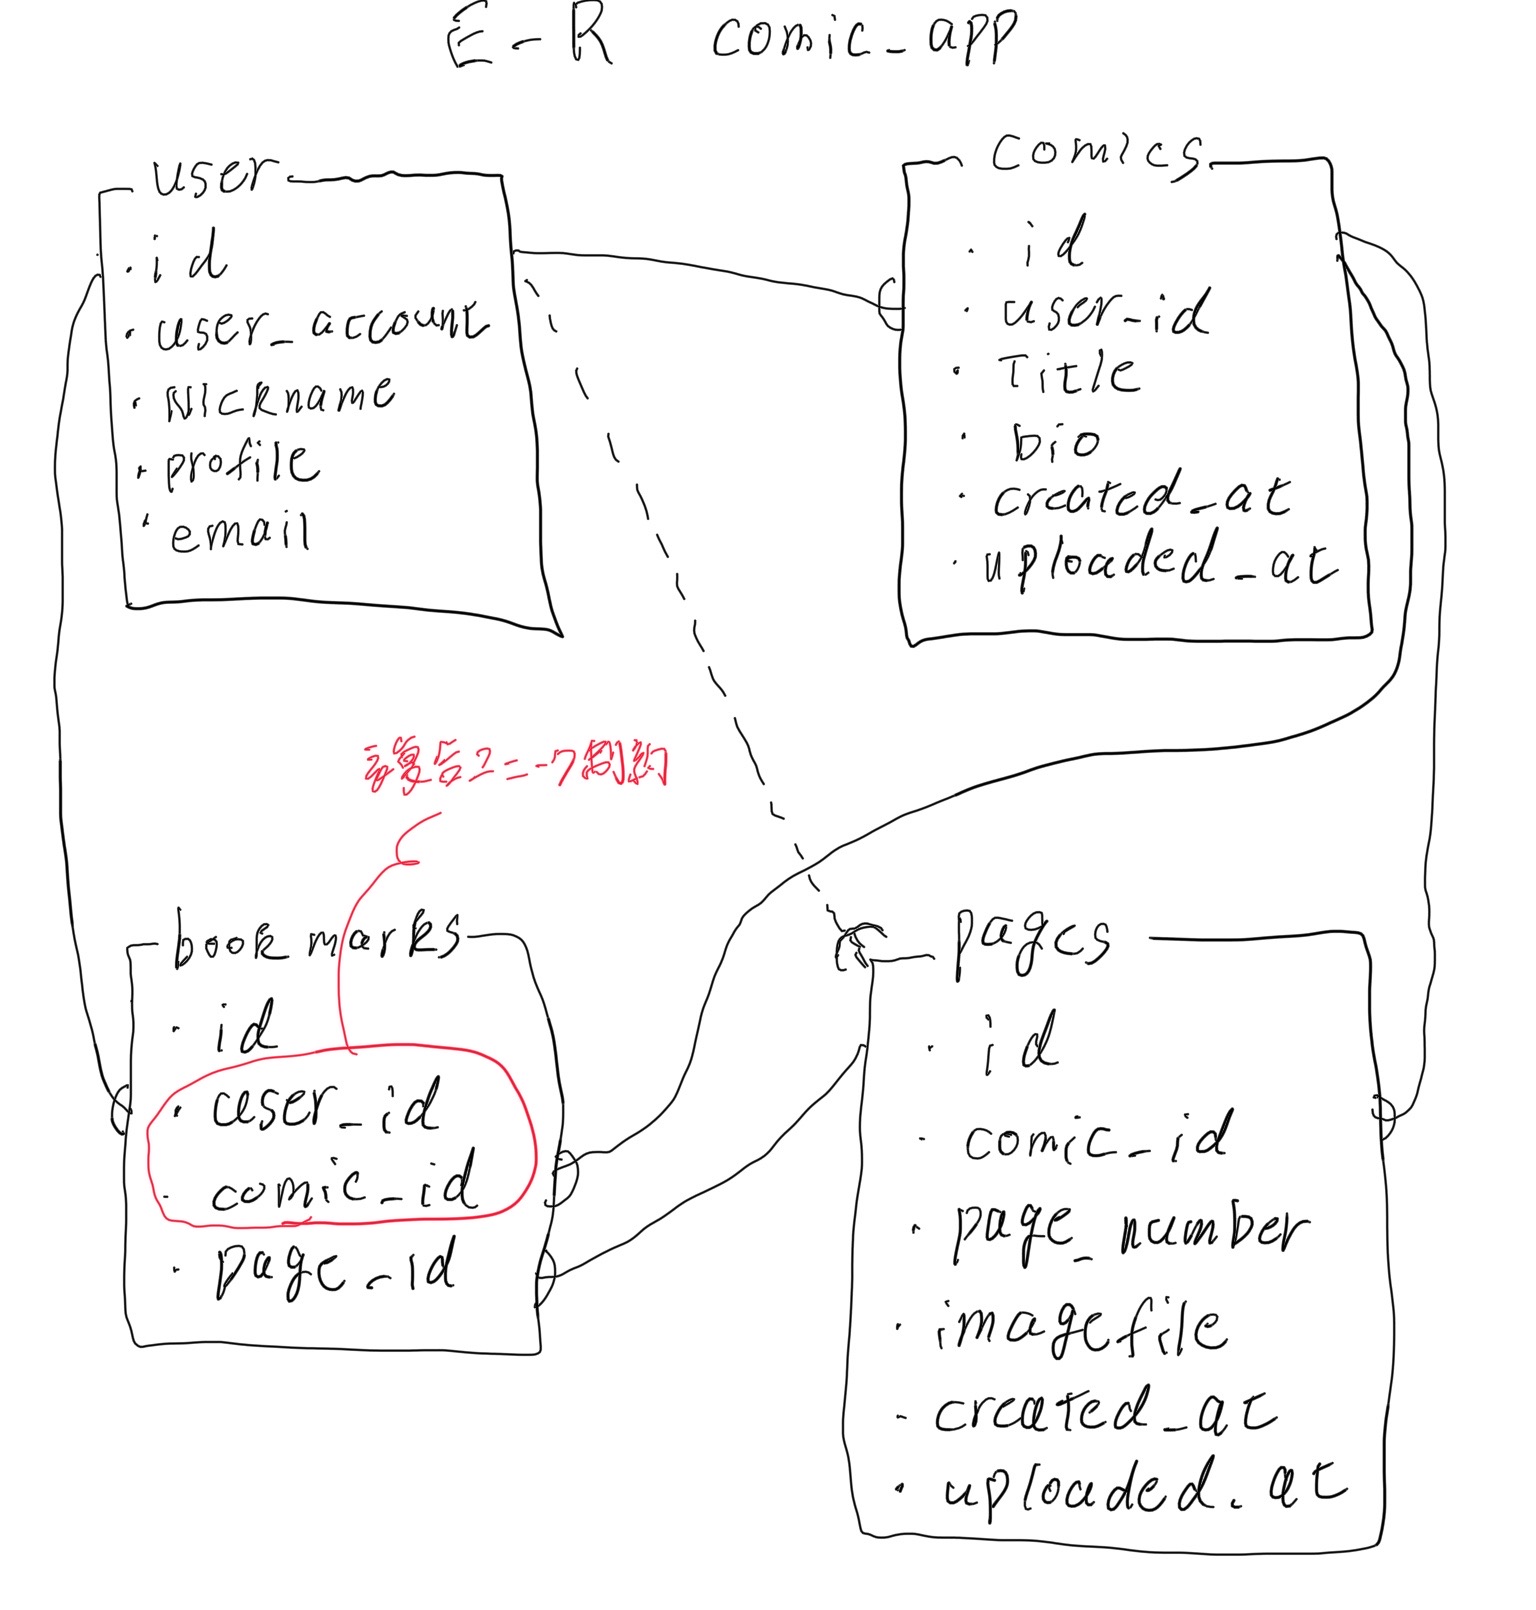 E-R comic_app
user
・id
・user_account
・Nickname
・profile
・email
comics
・id
・user_id
・Title
・bio
・created_at
・uploaded_at
複合ユニーク制約
book marks
・id
・user_id
・comic_id
・page_id
pages
・id
・comic_id
・page_number
・imagefile
・created_at
・uploaded_at